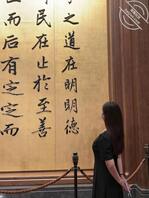 之道在明明德
民在止於至善
止而后有定定而